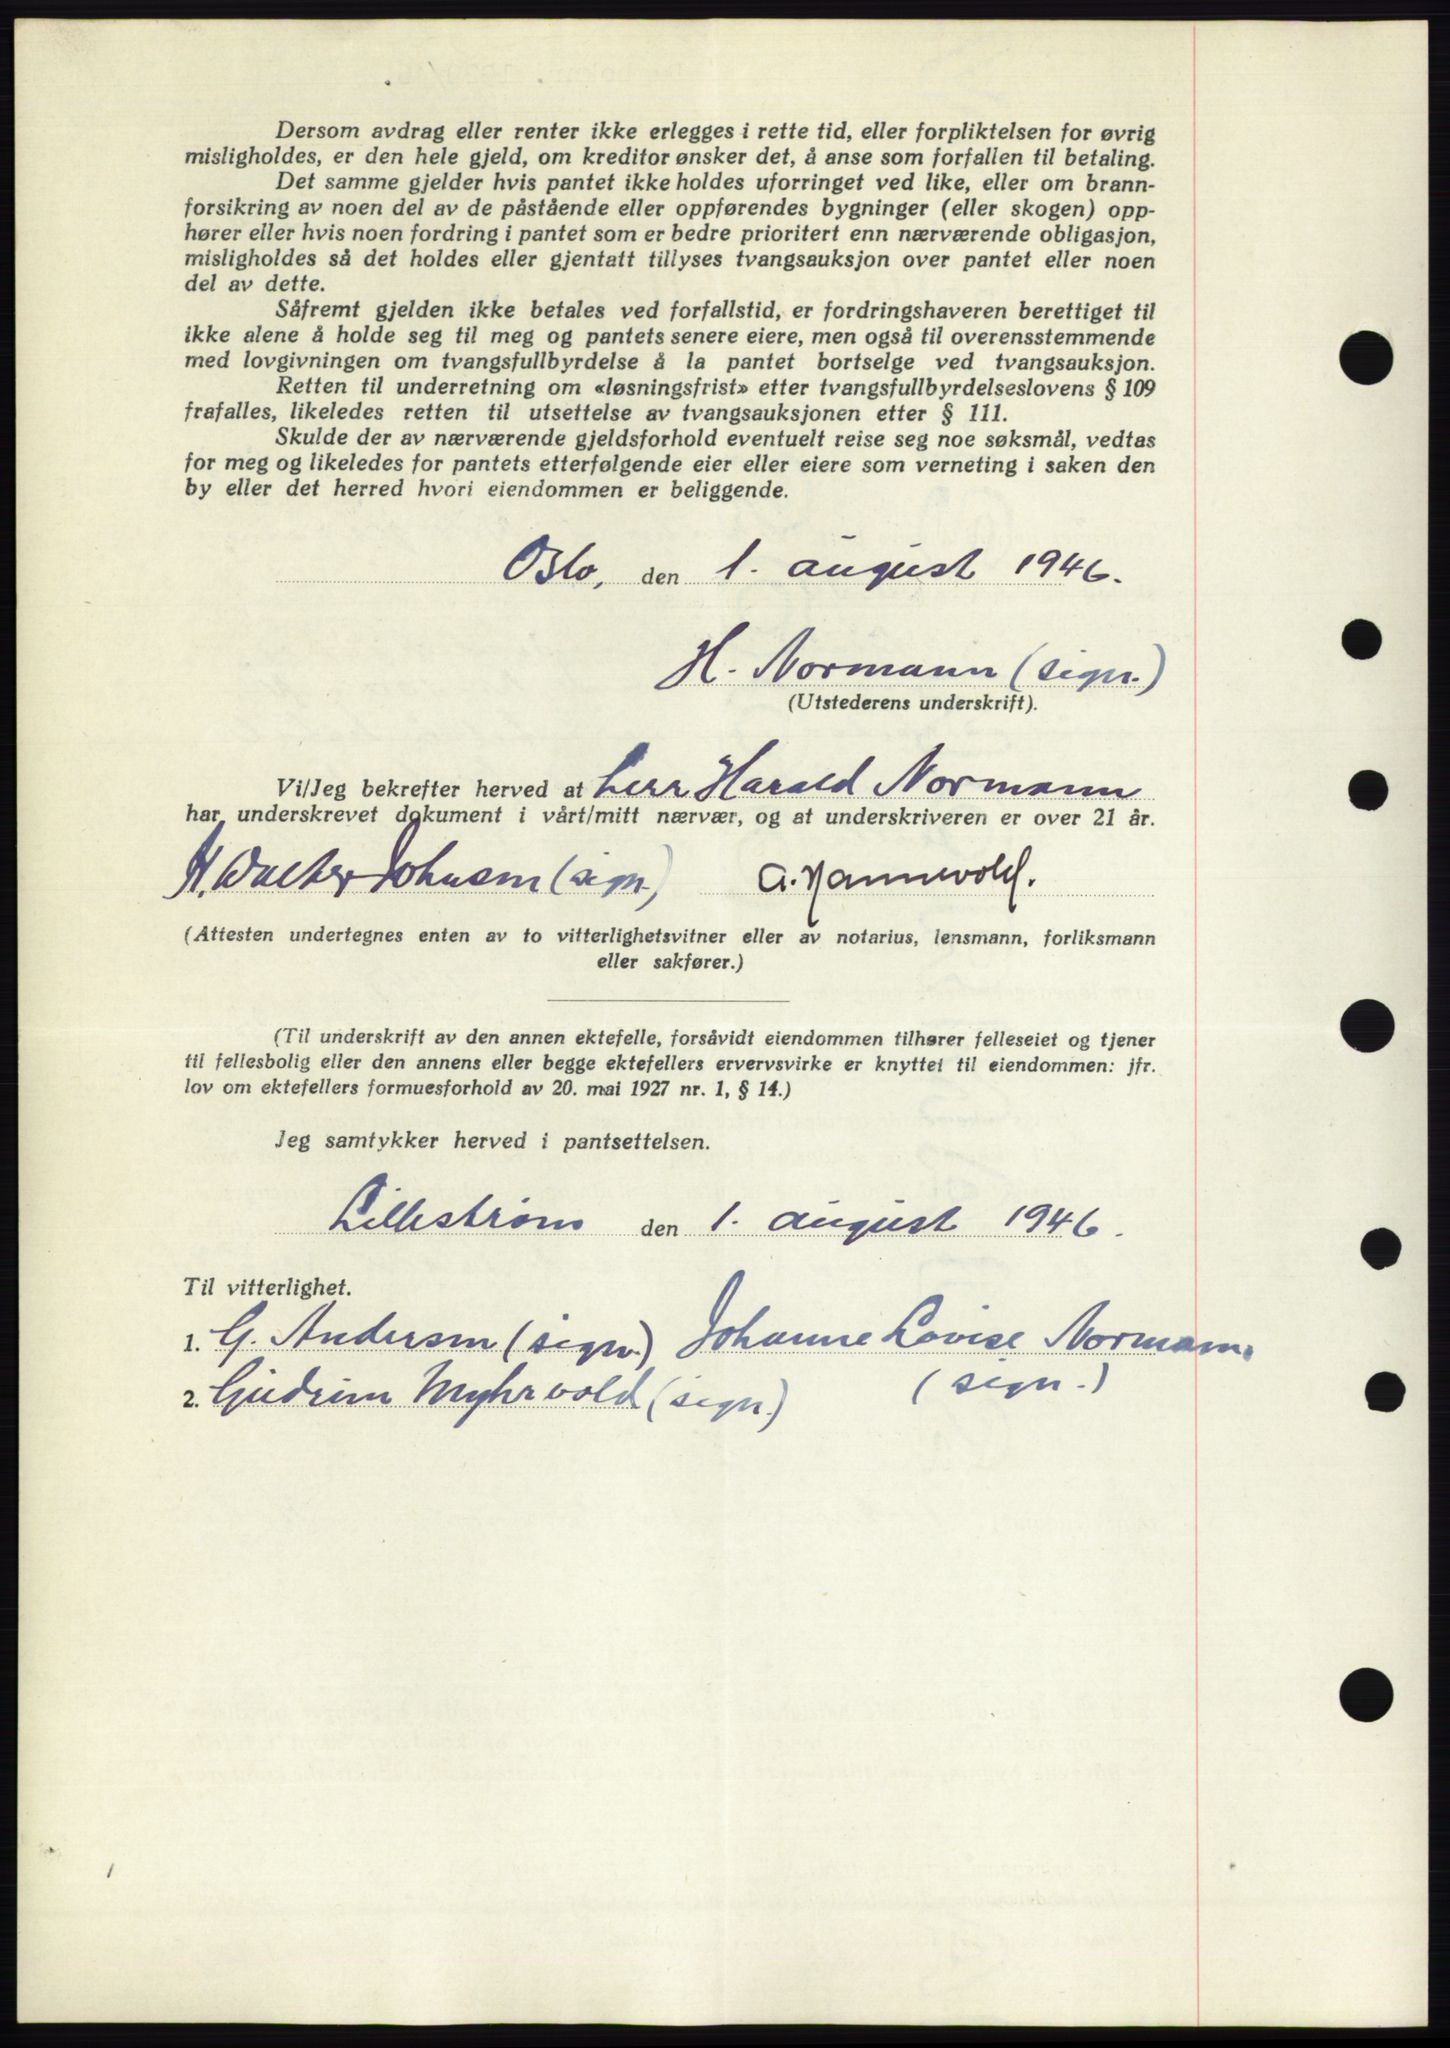 Dersom avdrag eller renter ikke erlegges i rette tid, eller forpliktelsen for øvrig
misligholdes, er den hele gjeld, om kreditor ønsker det, å anse som forfallen til betaling.
Det samme gjelder hvis pantet ikke holdes uforringet ved like, eller om brann-
forsikring av noen del av de påstående eller oppførendes bygninger (eller skogen) opp-
hører eller hvis noen fordring i pantet som er bedre prioritert enn nærværende obligasjon,
misligholdes så det holdes eller gjentatt tillyses tvangsauksjon over pantet eller noen
del av dette.
Såfremt gjelden ikke betales ved forfallstid, er fordringshaveren berettiget til
ikke alene å holde seg til meg og pantets senere eiere, men også til overensstemmende
med lovgivningen om tvangsfullbyrdelse å la pantet bortselge ved tvangsauksjon.
Retten til underretning om «løsningsfrist» etter tvangsfullbyrdelseslovens § 109
frafalles, likeledes retten til utsettelse av tvangsauksjonen etter § 111.
Skulde der av nærværende gjeldsforhold eventuelt reise seg noe søksmål, vedtas
for meg og likeledes for pantets etterfølgende eier eller eiere som verneting i saken den
by eller det herred hvori eiendommen er beliggende.
Oslo, den 1. august 1946.
H. Normann (sign.)
(Utstederens underskrift).
Vi/Jeg bekrefter herved at herr Harald Normann
har underskrevet dokument i vårt/mitt nærvær, og at underskriveren er over 21 år.
H. Walter Johnsen (sign.) A. Nannevold.
(Attesten undertegnes enten av to vitterlighetsvitner eller av notarius, lensmann, forliksmann
eller sakfører.)
(Til underskrift av den annen ektefelle, forsåvidt eiendommen tilhører felleseiet og tjener
til fellesbolig eller den annens eller begge ektefellers ervervsvirke er knyttet til eiendommen: jfr.
lov om ektefellers formuesforhold av 20. mai 1927 nr. 1, § 14.)
Jeg samtykker herved i pantsettelsen.
Lillestrøm den 1. august 1946.
Til vitterlighet.
1. G. Andersen (sign.) Johanne Lovise Normann.
2. Gudrun Myhrvold (sign.) (sign.)